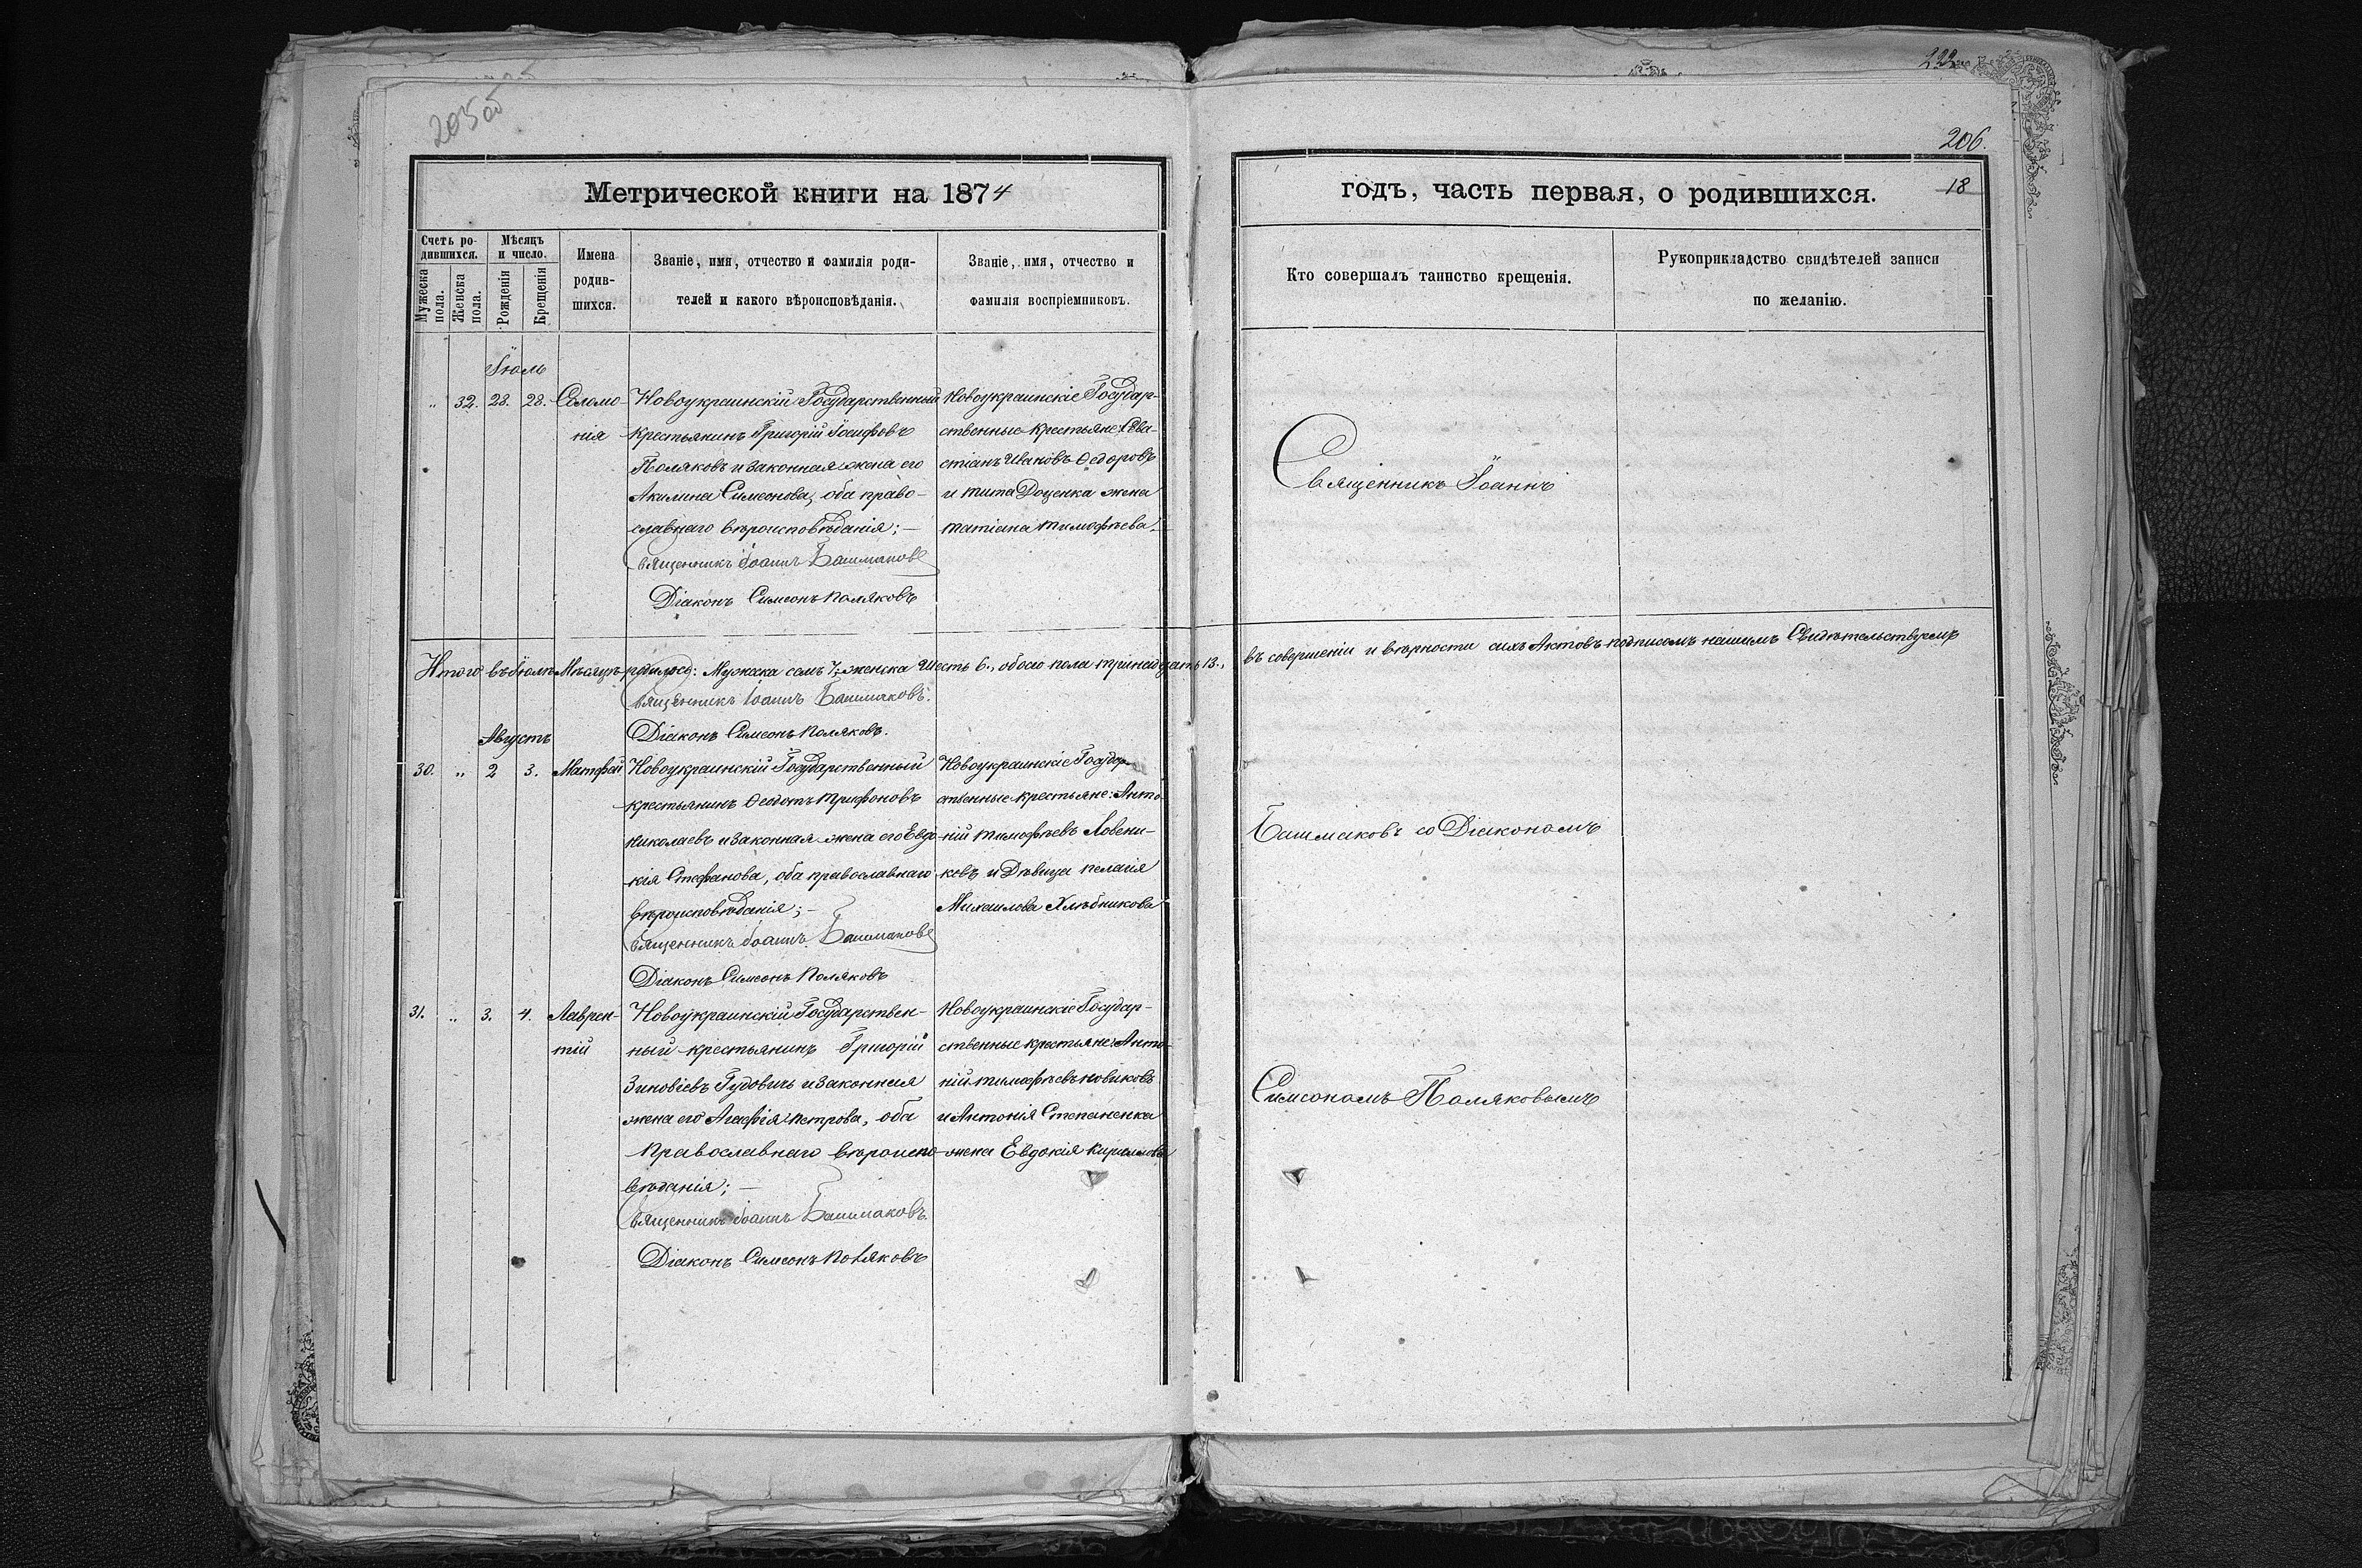 205 об
222
206.
Метрической книги на 1874
годъ, часть первая, о родившихся.
18
Счетъ ро-
дившихся.
Мужеска
пола.
Женска
пола.
Мѣсяцъ
и число.
Рожденія
Крещенія
Имена
родив-
шихся.
Званіе, имя, отчество и фамилія роди-
телей и какого вѣроисповѣданія.
Званіе, имя, отчество и
фамилія воспріемниковъ.
Кто совершалъ таинство крещенія.
Рукоприкладство свидѣтелей записи
по желанію.
Іюль
„ 32. 28. 28. Соломо-
нія
Новоукраинскій Государственный
крестьянинъ Григорій Іосифовъ
Поляковъ и законная жена его
Акилина Симеонова, оба право-
славнаго вѣроисповѣданія; —
Священникъ Іоаннъ Башмаковъ
Діаконъ Симеонъ Поляковъ
Новоукраинскіе Государ-
ственные крестьяне: Сева-
стіанъ Ивановъ Федоровъ
и Тита Доценка жена
Татіана Тимофѣева. —
Священникъ Іоаннъ
Итого въ Іюлѣ Мѣсяцѣ родилось: Мужеска семь 7; женска шесть 6., обоего пола тринадцать 13.,
въ совершеніи и вѣрности сихъ Актовъ подписомъ нашимъ Свидѣтельствуемъ
Священникъ Іоаннъ Башмаковъ.
Діаконъ Симеонъ Поляковъ.
Августъ
30. „ 2 3. Матфей
Новоукраинскій Государственный
крестьянинъ Феодотъ Трифоновъ
Николаевъ и законная жена его Евдо-
кія Стефанова, оба православнаго
вѣроисповѣданія; —
Священникъ Іоаннъ Башмаковъ
Діаконъ Симеонъ Поляковъ
Новоукраинскіе Государ-
ственные крестьяне: Анто-
ній Тимофѣевъ
и Дѣвица Пелагія
Михаилова Хлѣбникова
Башмаковъ со Діакономъ
31. „ 3. 4. Лаврен-
тій
Новоукраинскій Государствен-
ный крестьянинъ Григорій
Зиновіевъ Гудовичъ и законная
жена его Агафія Петрова, оба
Православнаго вѣроиспо-
вѣданія; —
Священникъ Іоаннъ Башмаковъ
Діаконъ Симеонъ Поляковъ
Новоукраинскіе Государ-
ственные крестьяне: Анто-
ній Тимофѣевъ Новиковъ
и Антонія Степаненка
жена Евдокія Кириллова
Симеономъ Поляковымъ